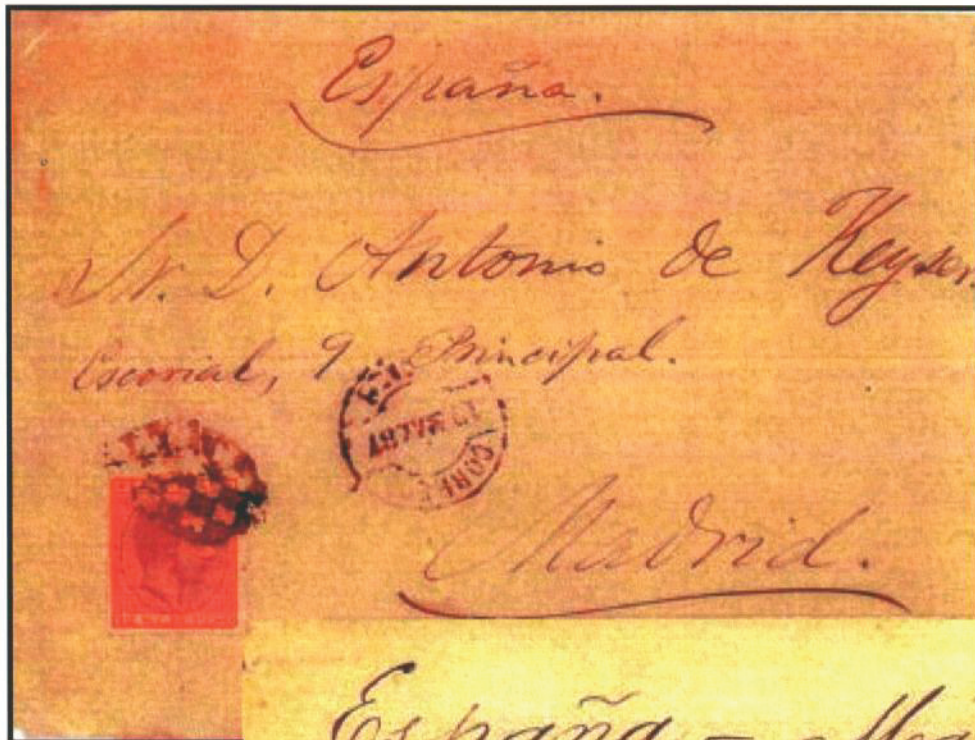 España.
Sr. D. Antonio de Keyser
Escorial, 9 Principal.
Madrid.
España -